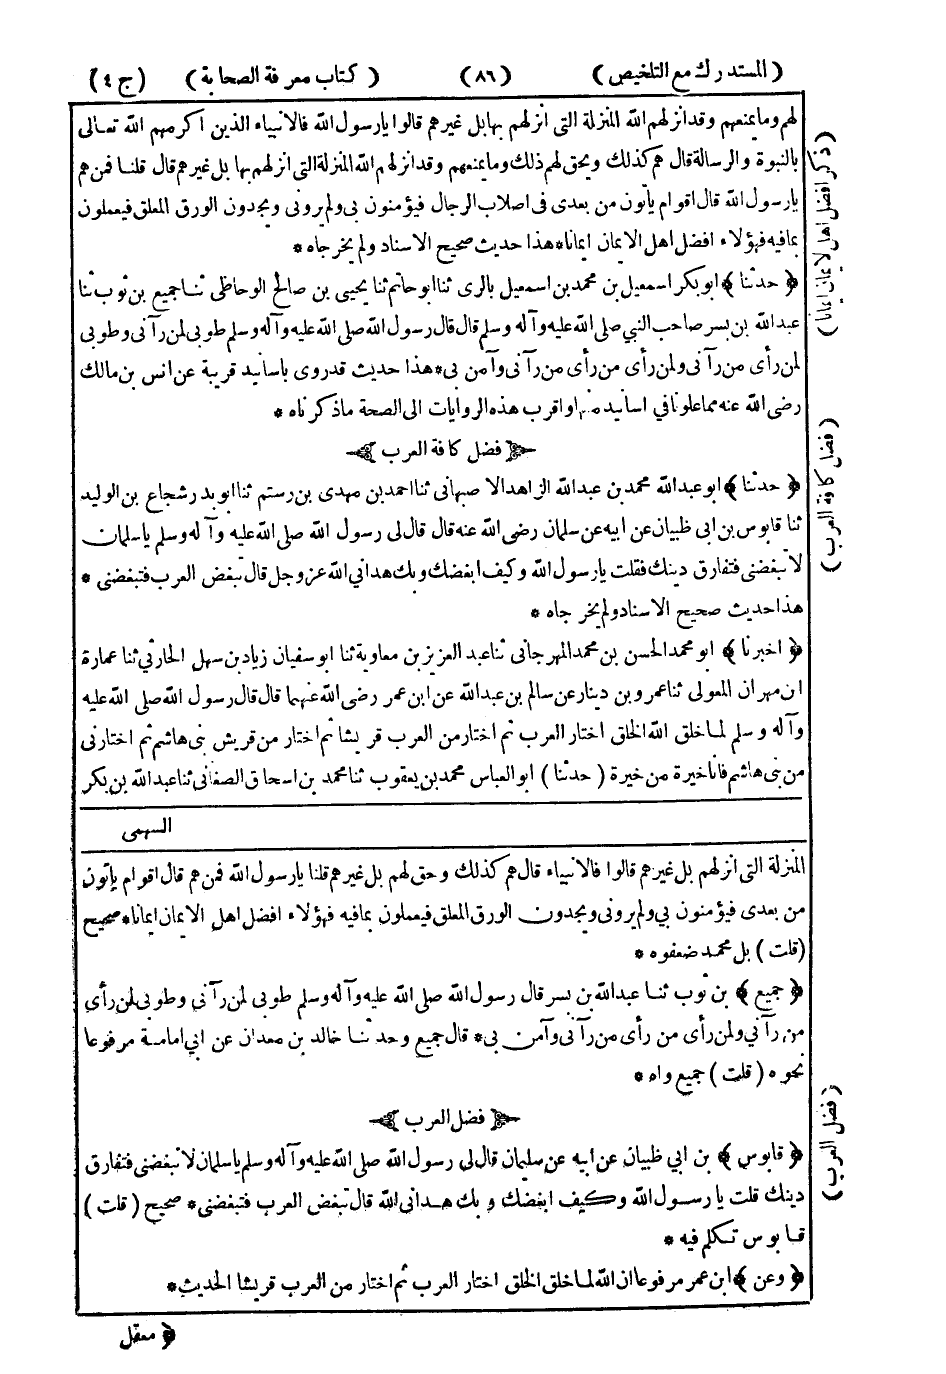 (المستدرك مع التلخيص) (٨٦) (كتاب معرفة الصحابة) (ج ٤)
لهم وما يمنعهم وقد انزلهم الله المنزلة التى انزلهم بها بل غيرهم قالوا يا رسول الله فالانبياء الذين اكرمهم الله تعالى
بالنبوة والرسالة قال هم كذلك ويحق لهم ذلك وما يمنعهم وقد انزلهم الله المنزلة التى انزلهم بها بل غيرهم قال قلنا فمن هم
يا رسول الله قال اقوام يأتون من بعدى فى اصلاب الرجال فيؤمنون بى ولم يرونى ويجدون الورق المعلق فيعملون
بما فيه فهؤلاء افضل اهل الايمان ايمانا * هذا حديث صحيح الاسناد ولم يخرجاه *
(ذكر افضل اهل الايمان ايمانا)
﴿حدثنا﴾ ابو بكر اسمعيل بن محمد بن اسمعيل بالرى ثنا ابو حاتم ثنا يحيى بن صالح الوحاظى ثنا جميع بن ثوب ثنا
عبدالله بن بسر صاحب النبي صلى الله عليه وآله وسلم قال قال رسول الله صلى الله عليه وآله وسلم طوبى لمن رآنى وطوبى
لمن رأى من رآنى ولمن رأى من رأى من رآنى وآمن بى * هذا حديث قد روى باسانيد قريبة عن انس بن مالك
رضى الله عنه مما علونا في اسانيد منها واقرب هذه الروايات الى الصحة ما ذكرناه *
﴿فضل كافة العرب﴾
(فضل كافة العرب)
﴿حدثنا﴾ ابو عبدالله محمد بن عبدالله الزاهد الاصبهانى ثنا احمد بن مهدى بن رستم ثنا ابو بدر شجاع بن الوليد
ثنا قابوس بن ابى ظبيان عن ابيه عن سلمان رضى الله عنه قال قال لى رسول الله صلى الله عليه وآله وسلم يا سلمان
لا تبغضنى فتفارق دينك فقلت يا رسول الله وكيف ابغضك وبك هدانى الله عز وجل قال تبغض العرب فتبغضنى *
هذا حديث صحيح الاسناد ولم يخرجاه *
﴿اخبرنا﴾ ابو محمد الحسن بن محمد المهرجانى ثنا عبد العزيز بن معاوية ثنا ابو سفيان زياد بن سهل الحارثى ثنا عمارة
ان مهران المعولى ثنا عمرو بن دينار عن سالم بن عبدالله عن ابن عمر رضى الله عنهما قال قال رسول الله صلى الله عليه
وآله وسلم لما خلق الله الخلق اختار العرب ثم اختار من العرب قريشا ثم اختار من قريش بنى هاشم ثم اختارنى
من بنى هاشم فانا خيرة من خيرة (حدثنا) ابو العباس محمد بن يعقوب ثنا محمد بن اسحاق الصغانى ثنا عبدالله بن بكر
السهمى
المنزلة التى انزلهم بل غيرهم قالوا فالانبياء قال هم كذلك وحق لهم بل غيرهم قلنا يا رسول الله فمن هم قال اقوام يأتون
من بعدى فيؤمنون بي ولم يرونى ويجدون الورق المعلق فيعملون بما فيه فهؤلاء افضل اهل الايمان ايمانا * صحيح
(قلت) بل محمد ضعفوه *
﴿جميع﴾ بن ثوب ثنا عبدالله بن بسر قال رسول الله صلى الله عليه وآله وسلم طوبى لمن رآنى وطوبى لمن رأى
من رآنى ولمن رأى من رأى من رآنى وآمن بى * قال جميع وحدثنا خالد بن معدان عن ابي امامة مرفوعا
نحوه (قلت) جميع واه *
﴿فضل العرب﴾
(فضل العرب)
﴿قابوس﴾ بن ابي ظبيان عن ابيه عن سليمان قال لى رسول الله صلى الله عليه وآله وسلم يا سلمان لا تبغضنى فتفارق
دينك قلت يا رسول الله وكيف ابغضك وبك هدانى الله قال تبغض العرب فتبغضنى * صحيح (قلت)
قابوس تكلم فيه *
﴿وعن﴾ ابن عمر مرفوعا ان الله لما خلق الخلق اختار العرب ثم اختار من العرب قريشا الحديث *
﴿معقل